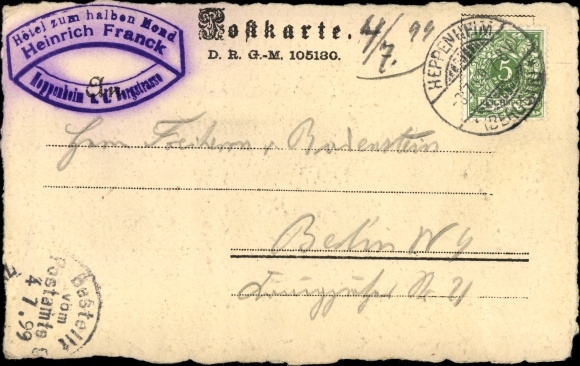 Hôtel zum halben Mond
Heinrich Franck
Heppenheim a. d. Bergstrasse
Postkarte.
4/7. 99
D. R. G.-M. 105130.
An
HEPPENHEIM
(BERG
5
Herrn Freiherrn v. Bodenstein
Berlin W 9
Bestellt
vom
Postamte
4 7. 99